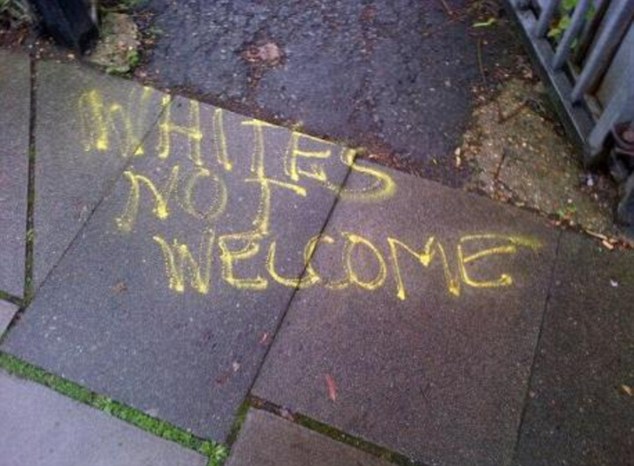 WHITES
NOT
WELCOME